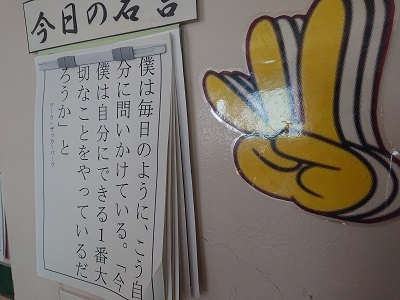 今日の名言
僕は毎日のように、こう自
分に問いかけている。「今
僕は自分にできる1番大
切なことをやっているだ
ろうか」と
マーク・ザッカーバーグ